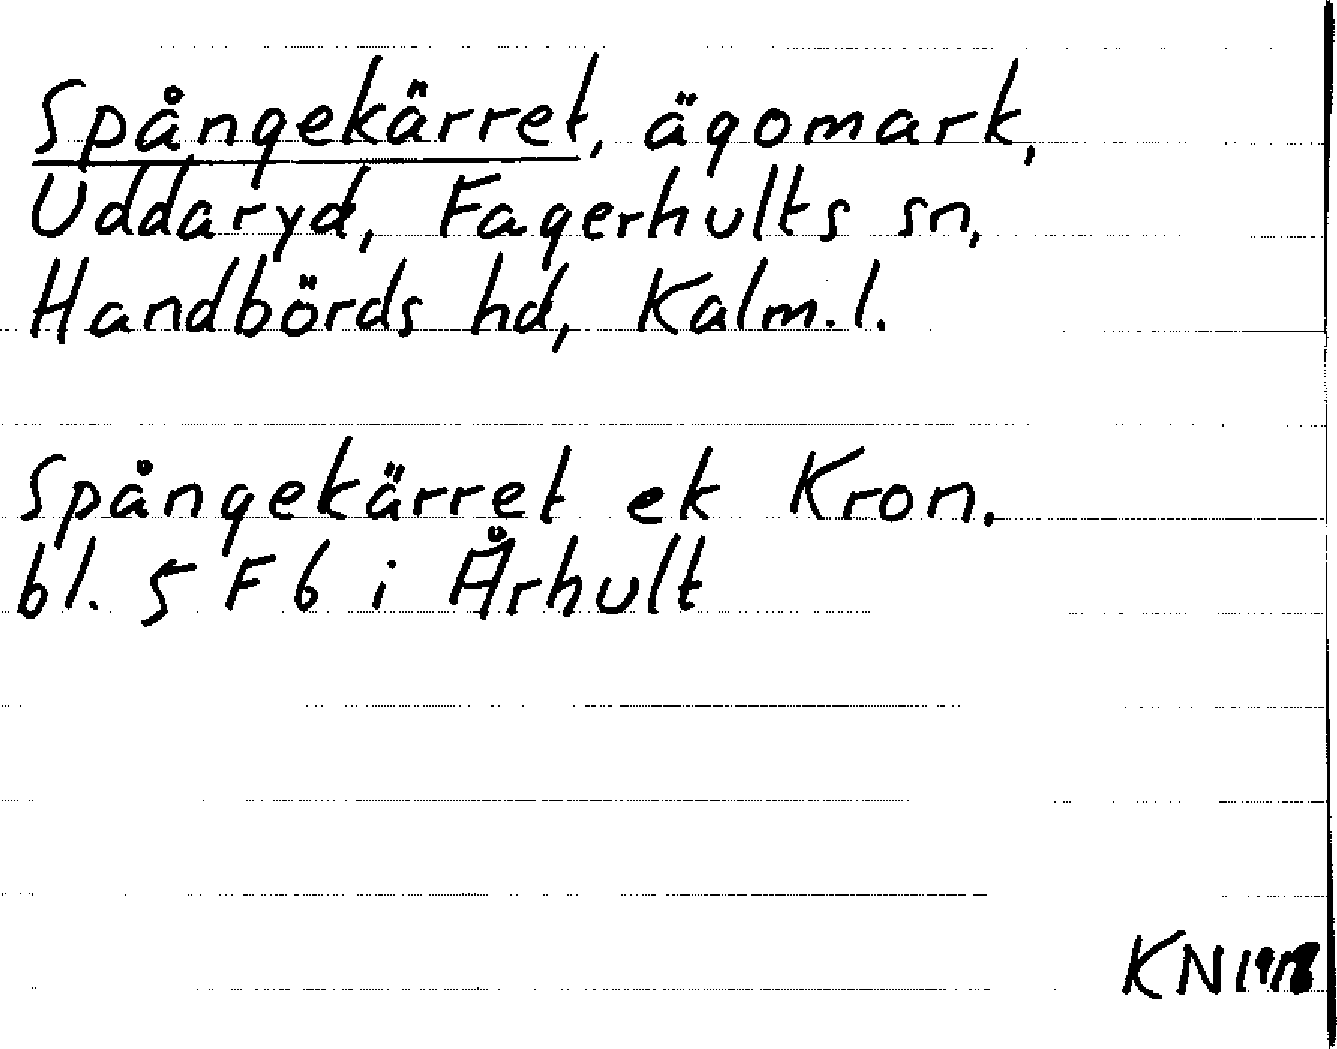 Spångekärret, ägomark,
Uddaryd, Fagerhults sn,
Handbörds hd, Kalm.l.
Spångekärret ek Kron.
bl. 5 F 6 i Århult
KN